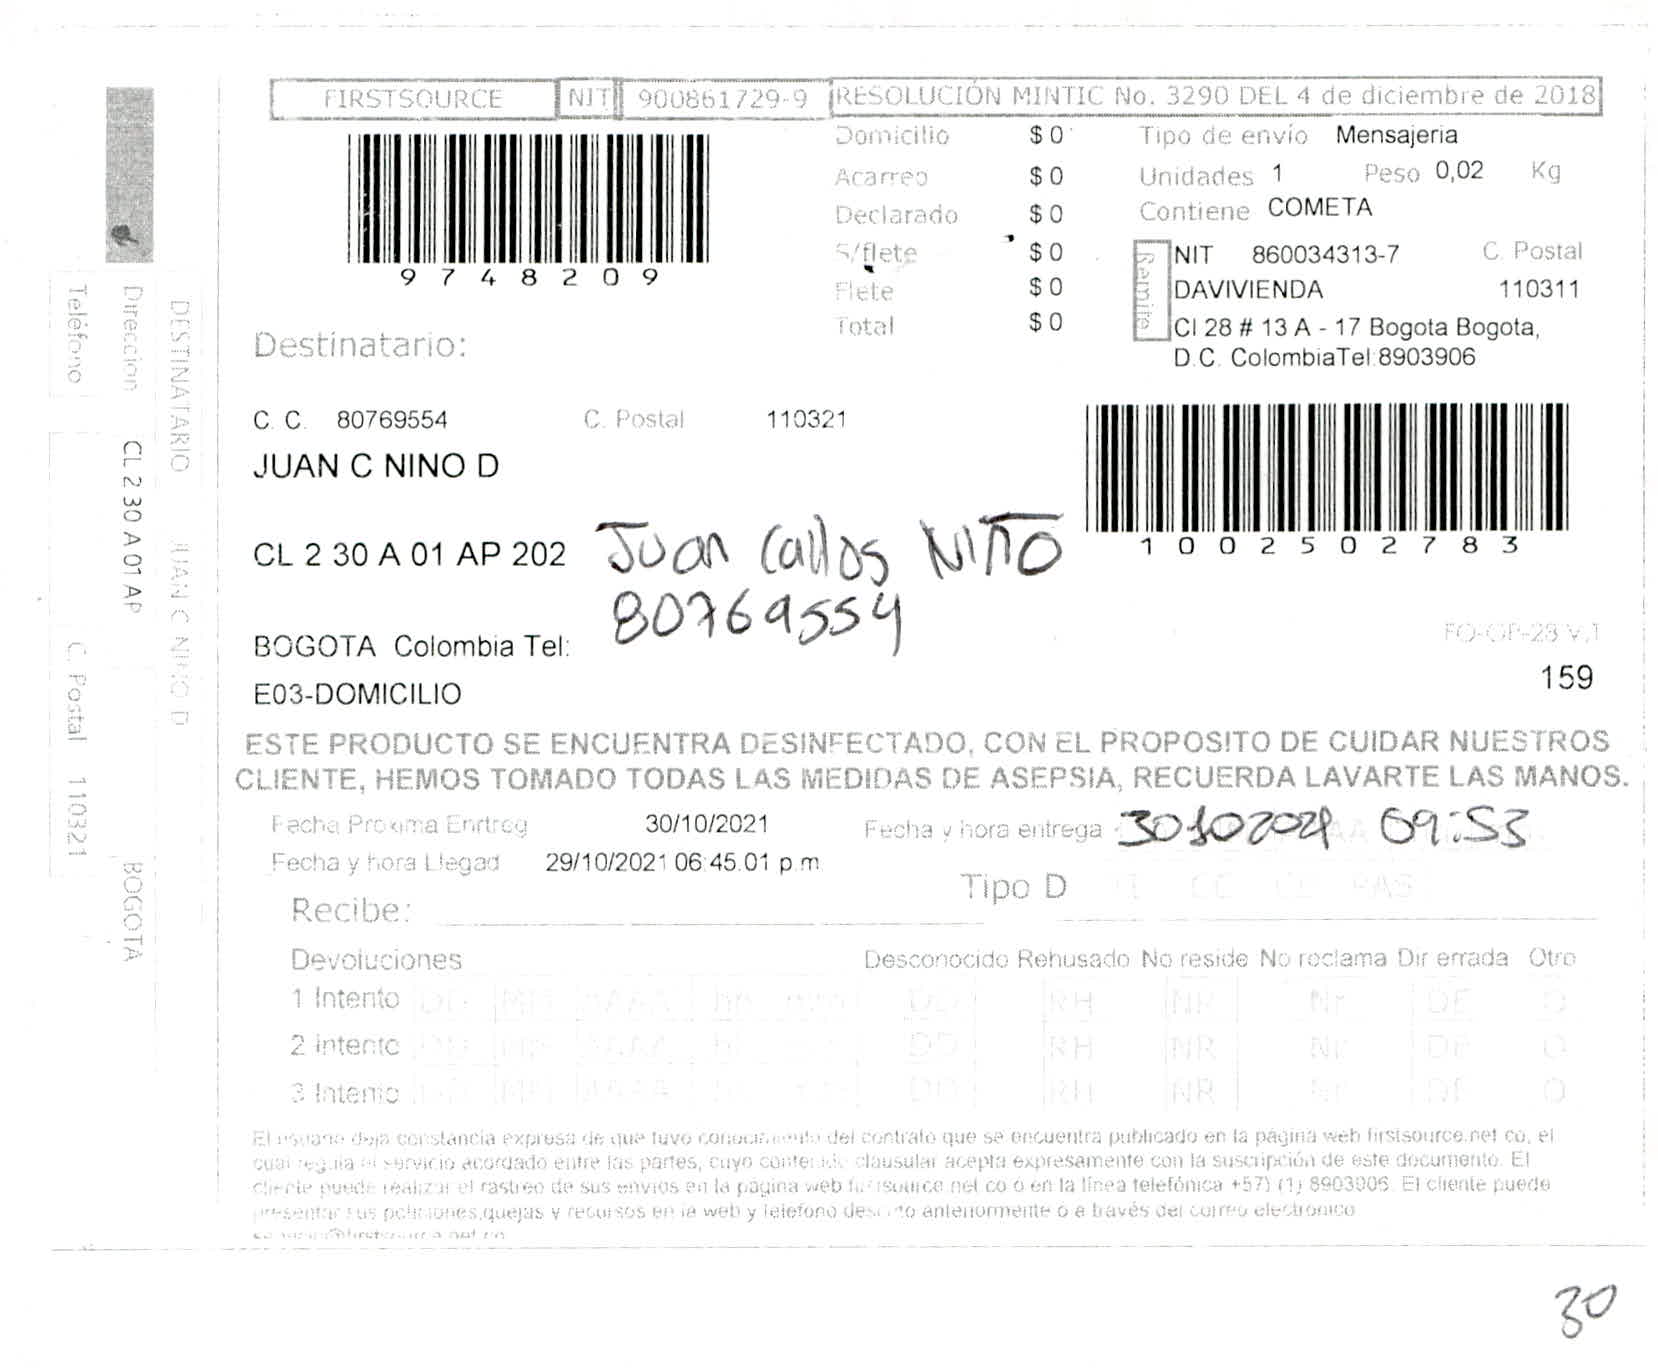 FIRSTSOURCE NIT 900861729-9 RESOLUCIÓN MINTIC No. 3290 DEL 4 de diciembre de 2018
9748209
Domicilio $ 0
Acarreo $ 0
Declarado $ 0
S/flete $ 0
Flete $ 0
Total $ 0
Tipo de envío Mensajeria
Unidades 1 Peso 0,02 Kg
Contiene COMETA
Remite
NIT 860034313-7 C. Postal
DAVIVIENDA 110311
Cl 28 # 13 A - 17 Bogota Bogota,
D.C. ColombiaTel:8903906
Destinatario:
C. C. 80769554 C. Postal 110321
JUAN C NINO D
1002502783
CL 2 30 A 01 AP 202 Juan Carlos NIÑO
80769554
BOGOTA Colombia Tel:
FO-OP-28 V.1
E03-DOMICILIO 159
ESTE PRODUCTO SE ENCUENTRA DESINFECTADO, CON EL PROPOSITO DE CUIDAR NUESTROS
CLIENTE, HEMOS TOMADO TODAS LAS MEDIDAS DE ASEPSIA, RECUERDA LAVARTE LAS MANOS.
Fecha Proxima Enrtreg 30/10/2021 Fecha y hora entrega 30102021 09:53
Fecha y hora Llegad 29/10/2021 06:45.01 p.m
Tipo D CC CE PAS
Recibe:
Devoluciones Desconocido Rehusado No reside No reclama Dir errada Otro
1 Intento DD MM AAAA hh mm DD RH NR Nr DE O
2 Intento DD MM AAAA hh DD RH NR Nr DE O
3 Intento MM AAAA DD RH NR Nr DE O
El usuario deja constancia expresa de que tuvo conocimiento del contrato que se encuentra publicado en la página web firstsource.net co, el
cual regula el servicio acordado entre las partes, cuyo contenido clausular acepta expresamente con la suscripción de este documento. El
cliente puede realizar el rastreo de sus envios en la página web firstsource.net co o en la línea telefónica +57) (1) 8903906. El cliente puede
presentar sus peticiones,quejas y recursos en la web y telefono descrito anteriormente o a través del correo electronico
DESTINATARIO JUAN C NINO D
Direccion CL 2 30 A 01 AP BOGOTA
Teléfono C. Postal 110321
30